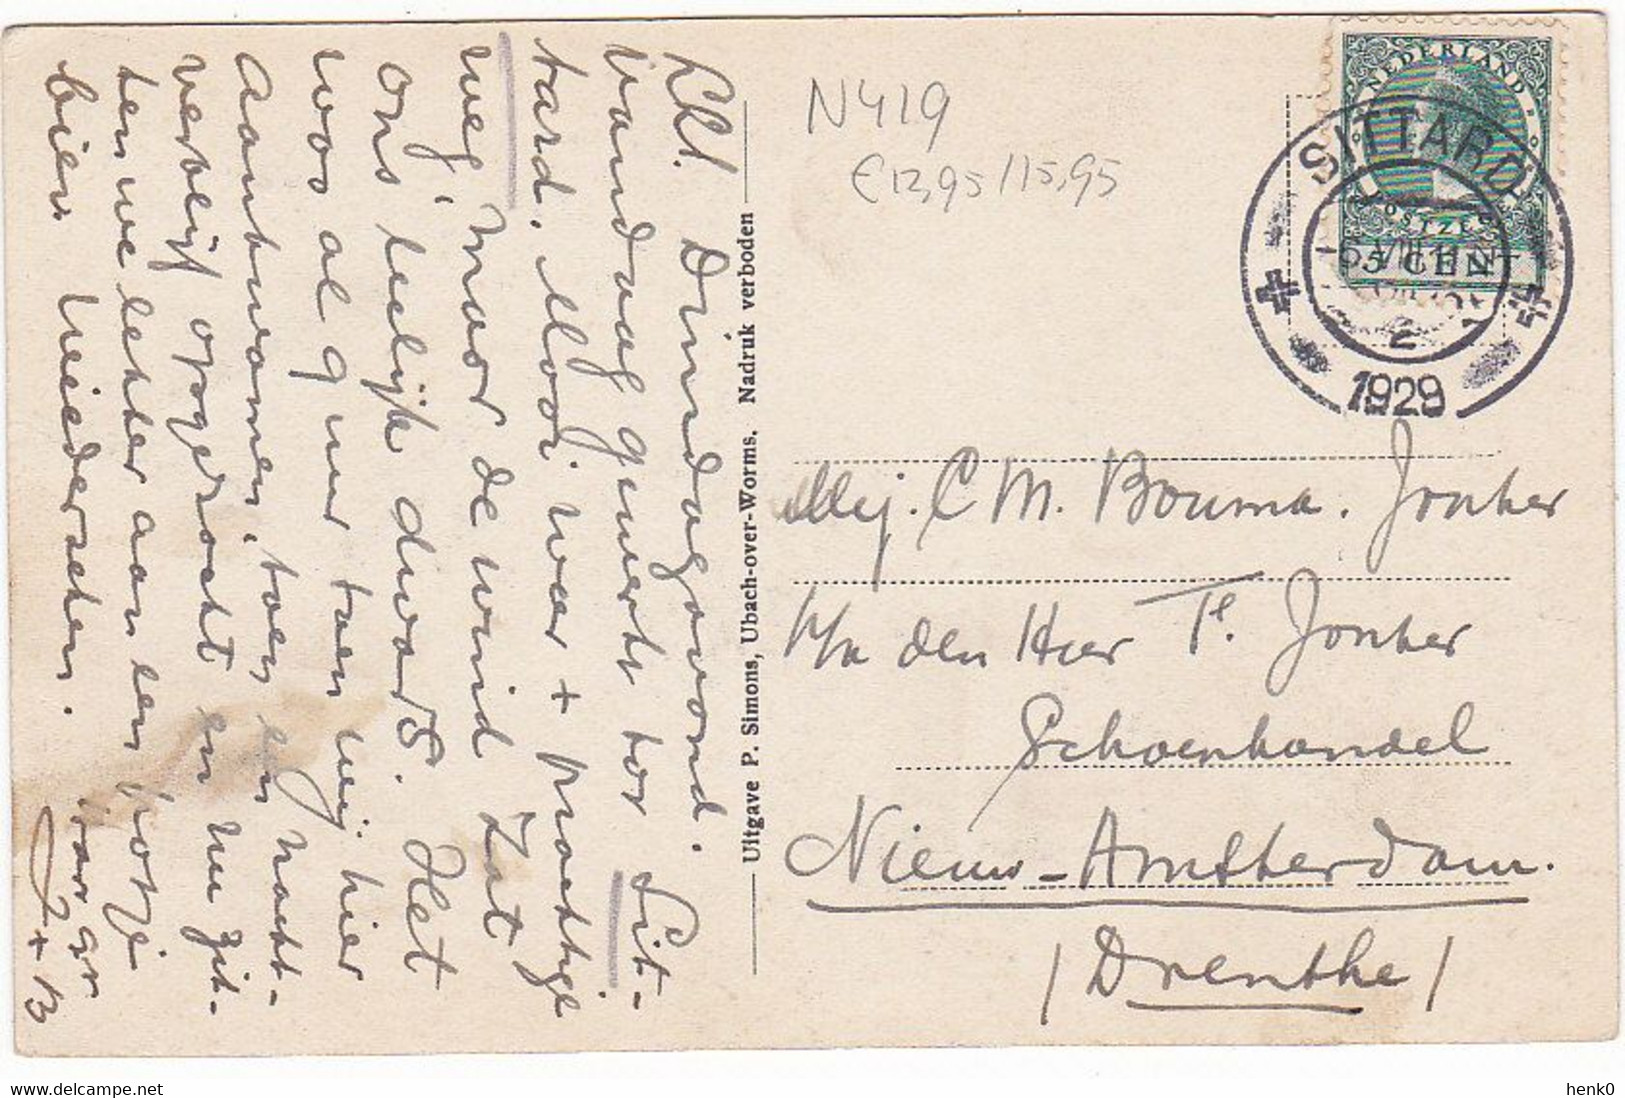 LL! Dinsdagavond.
Vandaag gewerkt tot Sit-
tard. Mooi weer + prachtige
weg, maar de wind zat
ons leelijk dwars. Het
was al 9 uur toen wij hier
aankwamen, toen een nacht-
verblijf opgezocht en nu zit-
ten we lekker aan een potje
bier. Weedersehen.
J + B
Uitgave P. Simons, Ubach-over-Worms. Nadruk verboden
N419
€12,95/15,95
NEDERLAND
POSTZEGEL
5 CENT
SITTARD
VIII
2
1929
Mej. C M. Bouma. Jonker
p/a den Heer Te. Jonker
Schoenhandel
Nieuw-Amsterdam.
/Drenthe/
henk0